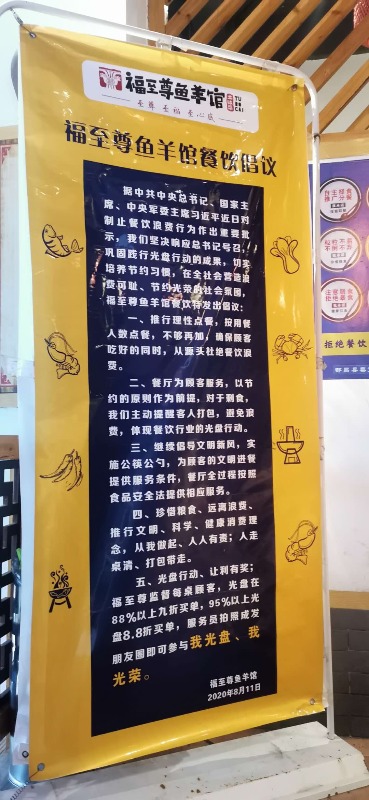 福至尊鱼羊馆
至尊 至福 至心底
福至尊鱼羊馆餐饮倡议
据中共中央总书记、国家主
席、中央军委主席习近平近日对
制止餐饮浪费行为作出重要批
示，我们坚决响应总书记号召，
巩固践行光盘行动的成果，切实
培养节约习惯，在全社会营造浪
费可耻、节约光荣的社会氛围，
福至尊鱼羊馆餐饮特发出倡议：
一、推行理性点餐，按用餐
人数点餐，不够再加，确保顾客
吃好的同时，从源头杜绝餐饮浪
费。
二、餐厅为顾客服务，以节
约的原则作为前提，对于剩食，
我们主动提醒客人打包，避免浪
费，体现餐饮行业的光盘行动。
三、继续倡导文明新风，实
施公筷公勺，为顾客的文明进餐
提供服务条件，餐厅全过程按照
食品安全法提供相应服务。
四、珍惜粮食、远离浪费、
推行文明、科学、健康消费理
念，从我做起、人人有责；人走
桌清、打包带走。
五、光盘行动、让利有奖；
福至尊监督每桌顾客，光盘在
88%以上九折买单，95%以上光
盘8.8折买单，服务员拍照成发
朋友圈即可参与我光盘、我
光荣。
福至尊鱼羊馆
2020年8月11日
拒绝餐饮